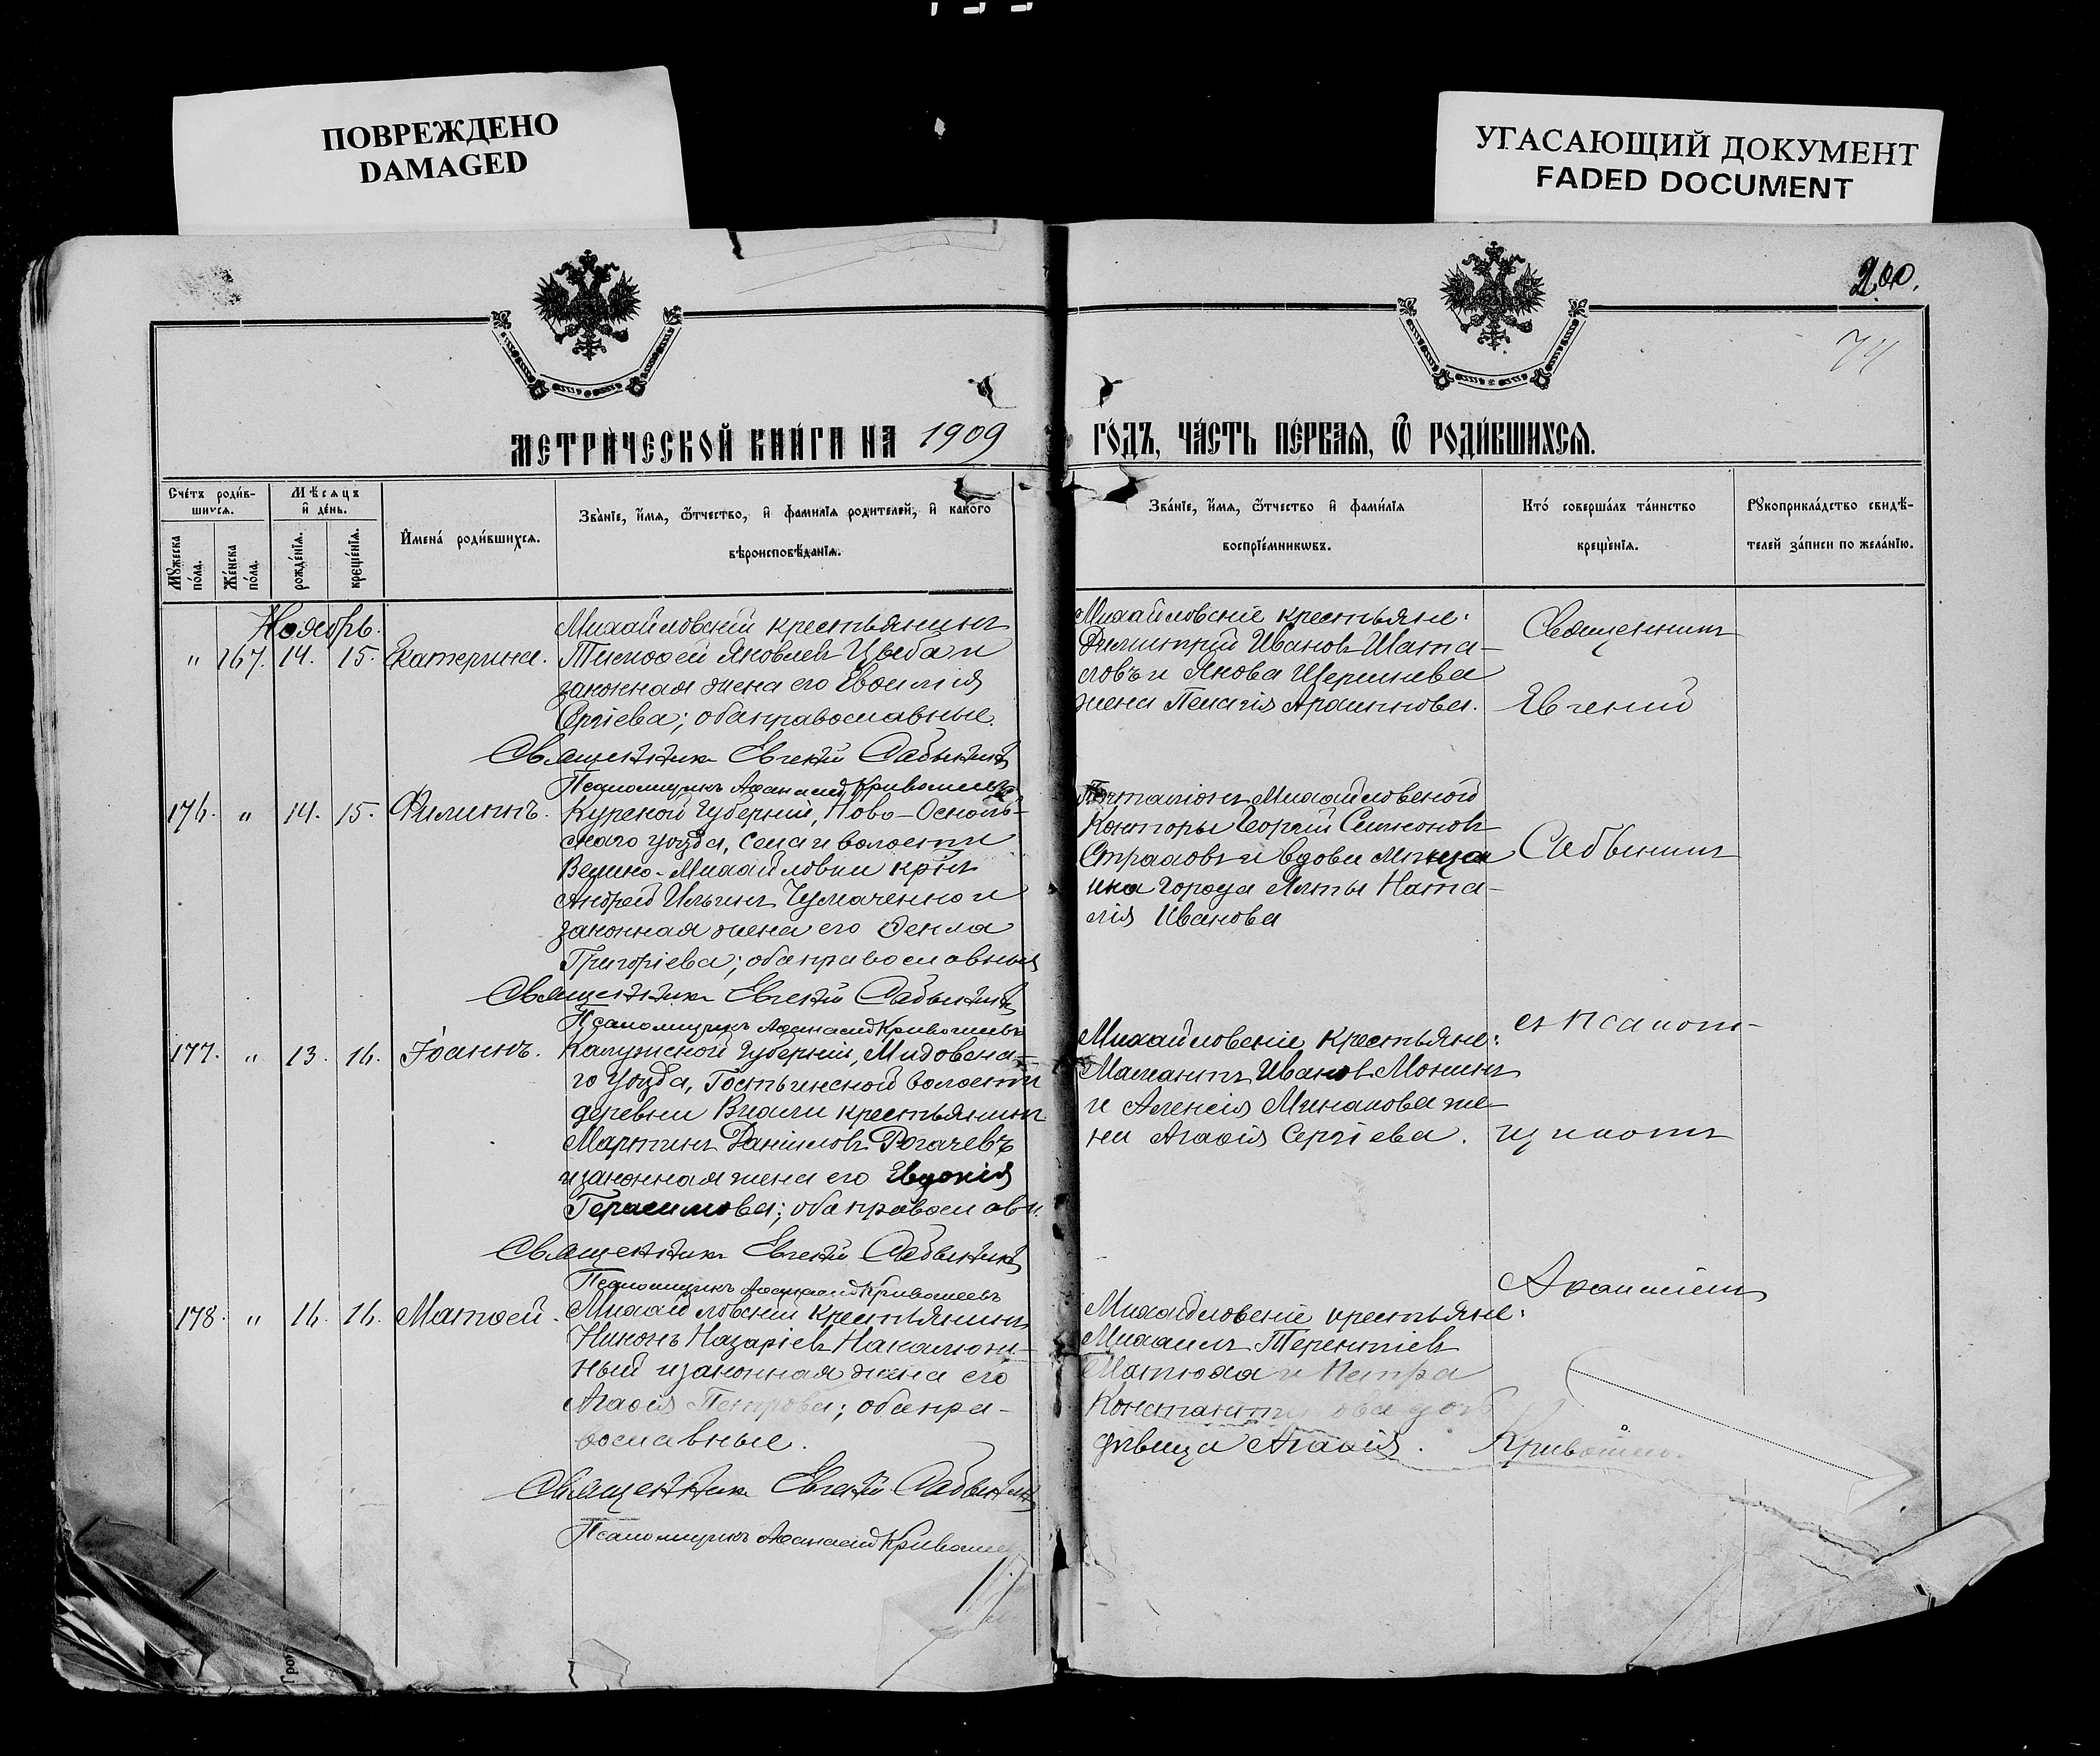 ПОВРЕЖДЕНО
DAMAGED
УГАСАЮЩИЙ ДОКУМЕНТ
FADED DOCUMENT
200.
74
МЕТРИ́ЧЕСКОЙ КНИ́ГИ НА 1909
ГО́ДЪ, ЧА́СТЬ ПЕ́РВАѦ, Ѿ РОДИ́ВШИХСѦ.
Сче́тъ роди́в-
шихсѧ.
Мѣсѧцъ
и҆ де́нь.
Мꙋ́жеска
по́ла.
Же́нска
по́ла.
рожде́нїѧ.
креще́нїѧ.
И҆мена́ роди́вшихсѧ.
Зва́нїе, и҆́мѧ, ѻ҆́тчество, и҆ фами́лїѧ роди́телей, и҆ како́го
вѣроисповѣ́данїѧ.
Зва́нїе, и҆́мѧ, ѻ҆́тчество и҆ фами́лїѧ
воспрїе́мникѡвъ.
Кто́ соверша́лъ та́инство
креще́нїѧ.
Рꙋкоприкла́дство свидѣ́-
телей за́писи по жела́нїю.
Ноябрь.
" 167. 14. 15. Екатерина.
Михайловскій крестьянинъ
Тимофей Яковлевъ Цыба и
законная жена его Евфимія
Сергіева; оба православные.
Священникъ Евгеній Сабынинъ
Псаломщикъ Афанасій Кривошеевъ
Михайловскіе крестьяне:
Димитрій Ивановъ Шата-
ловъ и Якова
жена Пелагія
Священникъ
Евгеній
176. " 14. 15. Филиппъ.
Курской Губерніи, Ново-Осколь-
скаго уѣзда, села и волости
Велико-Михайловки кр-нъ
Андрей Ильинъ Чумаченко и
законная жена его Фекла
Григоріева; оба православные
Священникъ Евгеній Сабынинъ
Псаломщикъ Афанасій Кривошеевъ
Почталіонъ Михайловской
Конторы Георгій Симоновъ
Страховъ и вдова мѣща
нка города Ялты Ната-
лія Иванова
Сабынинъ
177. " 13. 16. Іоаннъ.
Калужской Губерніи,
го уѣзда, волости
деревни крестьянинъ
Мартинъ Даніиловъ Рогачевъ
и законная жена его Евдокія
Герасимова; оба правосл авн.
Священникъ Евгеній Сабынинъ
Псаломщикъ Афанасій Кривошеевъ
Михайловскіе крестьяне:
Ивановъ
и Алексія Минакова же-
на Агафія Сергіева.
съ псалом-
щикомъ
178. " 16. 16. Матфей.
Михайловскій крестьянинъ
Никонъ Назаріевъ Накалюж-
ный и законная жена его
Агафія Петрова; оба пра-
вославные.
Священникъ Евгеній Сабынинъ
Псаломщикъ Афанасій Кривошее
Михайловскіе крестьяне:
Михаилъ Терентіевъ
Матюха и Петра
Константинова дочь
дѣвица Агафія.
Афанасіемъ
Кривошее